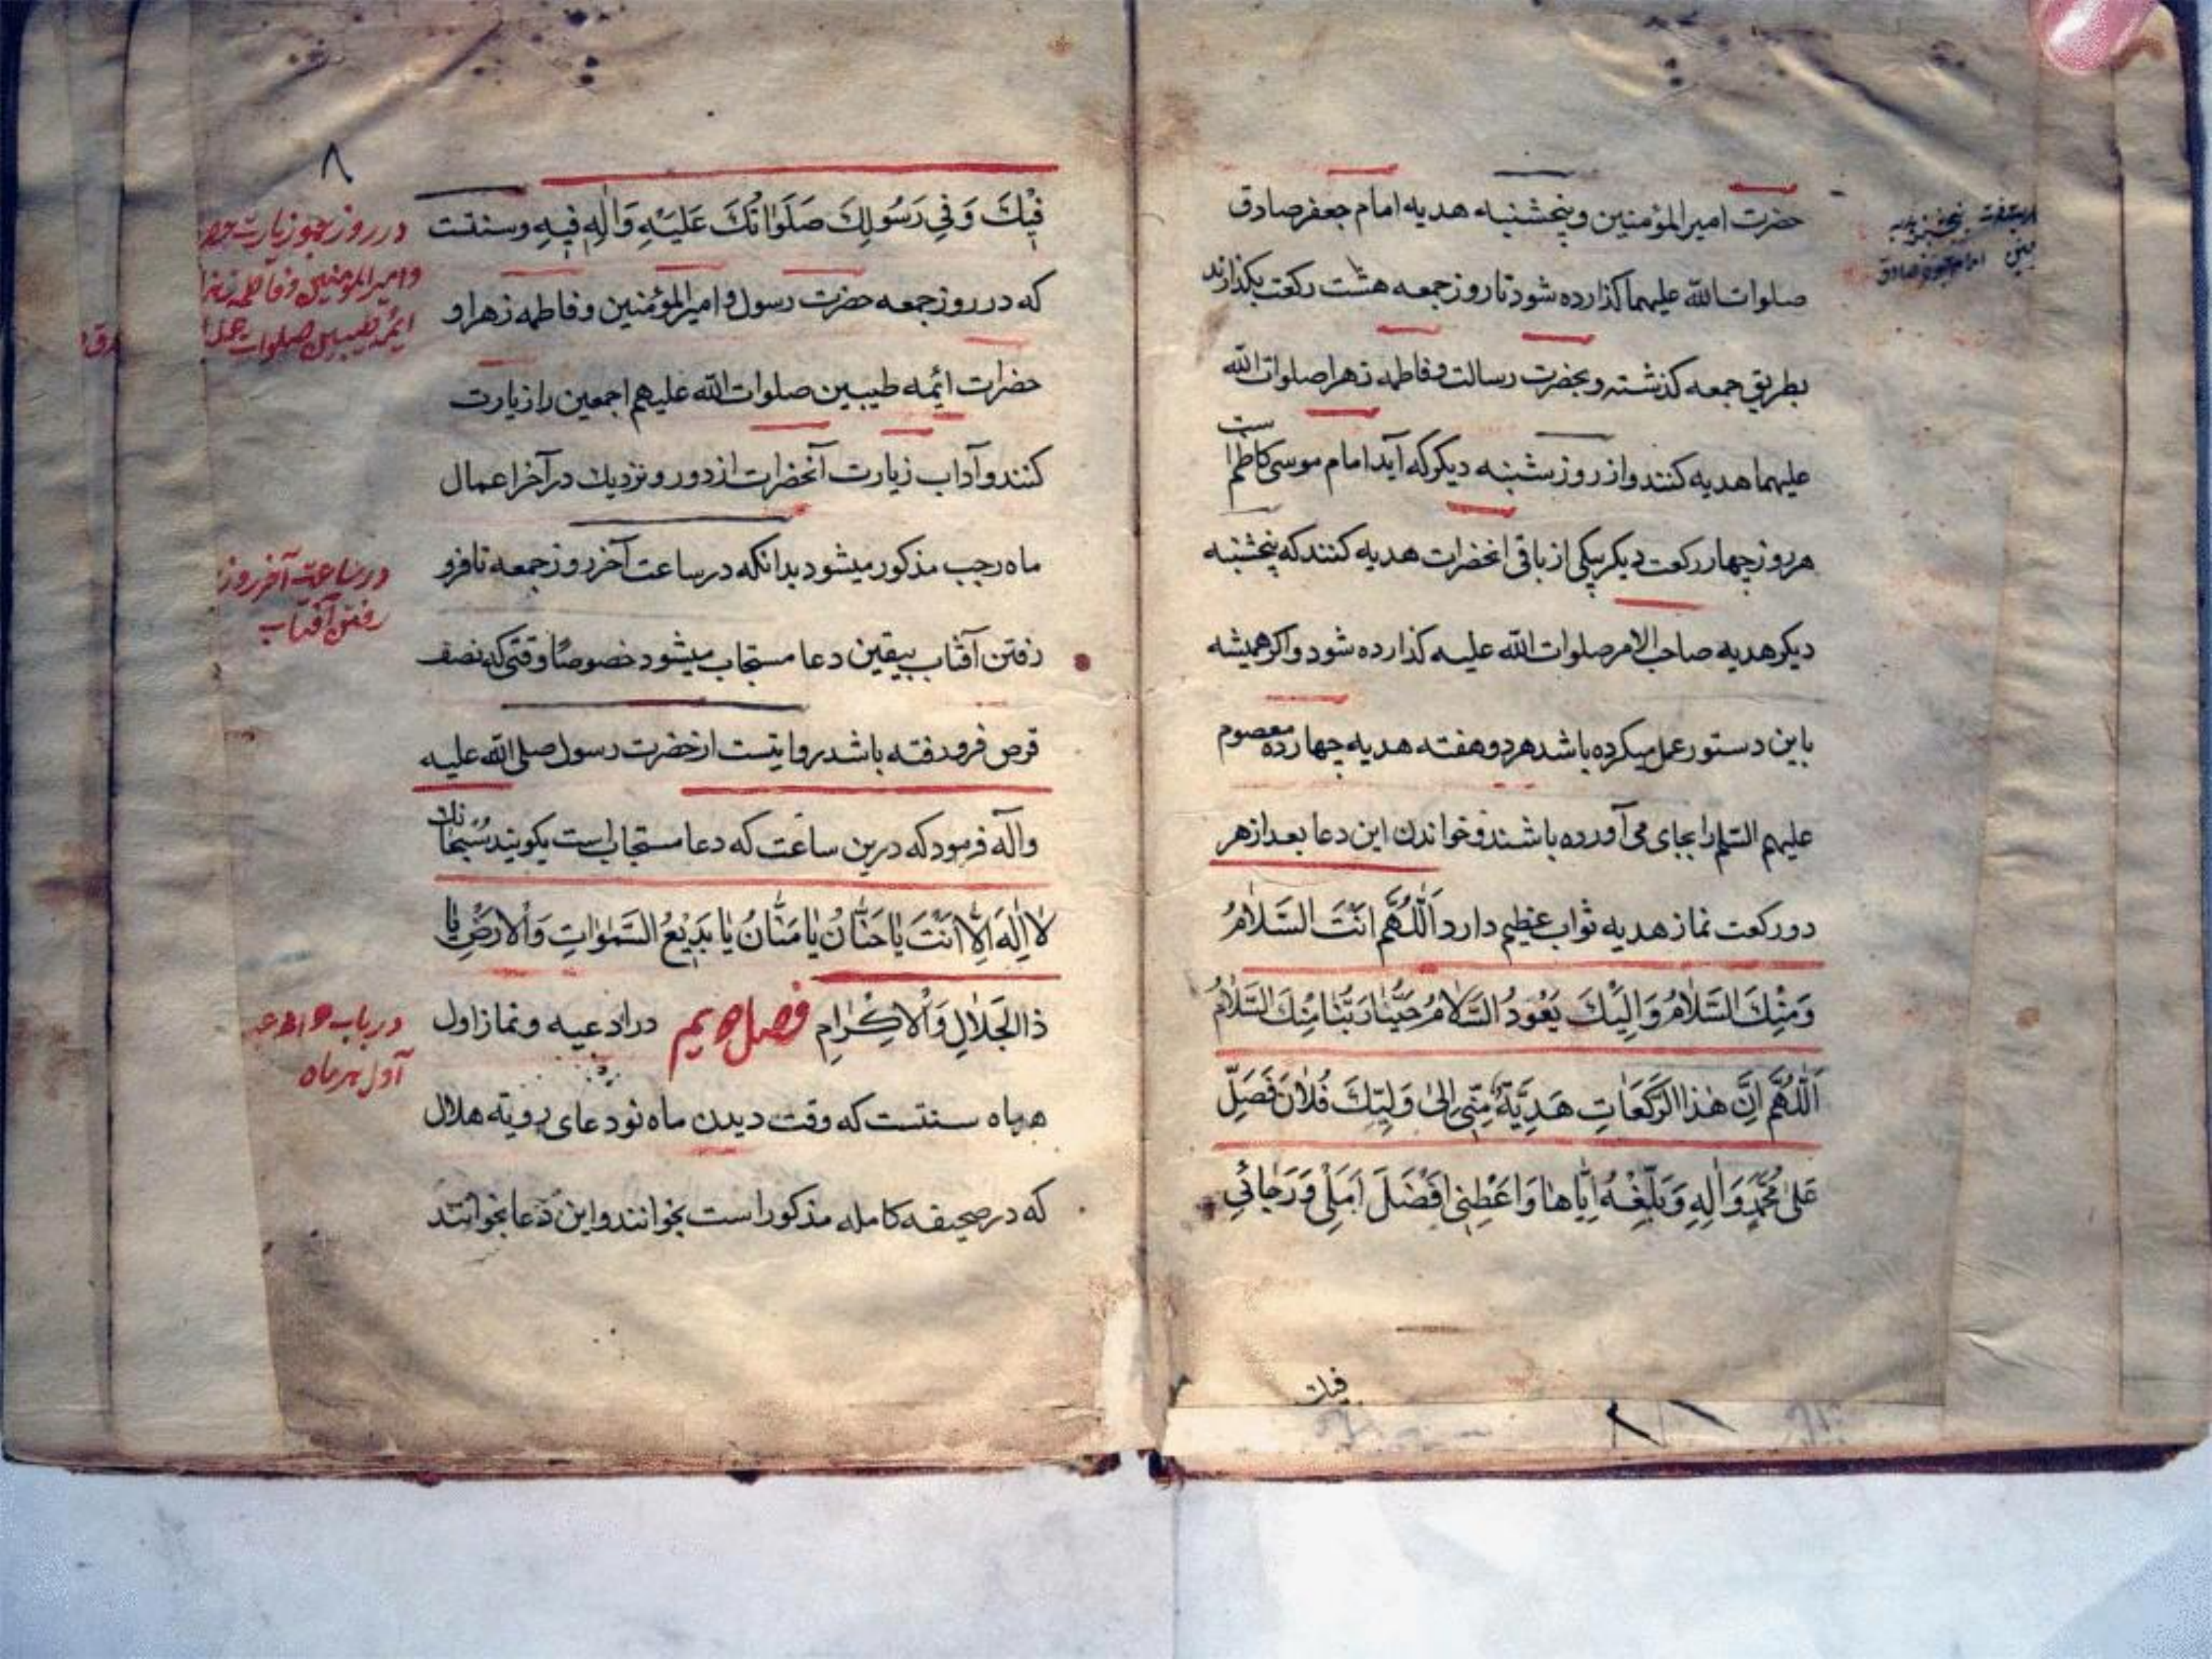 حضرت امیرالمؤمنین و پنجشنبه هدیه امام جعفر صادق
صلوات الله علیهما گذارده شود تا روز جمعه هشت رکعت بگذارند
بطریق جمعه گذشته و بحضرت رسالت و فاطمه زهرا صلوات الله
علیهما هدیه کنند و از روز شنبه دیگر که آید امام موسی کاظم است
هر روز چهار رکعت دیگر بیکی از باقی انحضرات هدیه کنند که پنجشنبه
دیگر هدیه صاحب الامر صلوات الله علیه گذارده شود و اگر همیشه
باین دستور عمل میکرده باشد هر دو هفته هدیه چهارده معصوم
علیهم السلم را بجای می آورده باشند و خواندن این دعا بعد از هر
دو رکعت نماز هدیه ثواب عظیم دارد اَللّٰهُمَّ اَنْتَ السَّلَامُ
وَمِنْكَ السَّلَامُ وَاِلَيْكَ يَعُوْدُ السَّلَامُ حَيِّنَا رَبَّنَا مِنْكَ السَّلَامُ
اَللّٰهُمَّ اِنَّ هٰذَا الرَّكَعَاتِ هَدِيَّةٌ مِنّي اِلىٰ وَلِيِّكَ فُلَان فَصَلِّ
عَلىٰ مُحَمَّدٍ وَاٰلِهِ وَبَلِّغْهُ اِيَّاهَا وَاَعْطِني اَفْضَلَ اَمَلي وَرَجَائي
فیك
۸
فيْكَ وَفي رَسُولِكَ صَلَوَاتُكَ عَلَيْهِ وَاٰلِهِ فيهِ و سنتست
که در روز جمعه حضرت رسول و امیرالمؤمنین و فاطمه زهرا و
حضرات ائمه طیبین صلوات الله علیهم اجمعین را زیارت
کنند و آداب زیارت آنحضرات از دور و نزدیك در آخر اعمال
ماه رجب مذکور میشود بدانکه در ساعت آخر روز جمعه تا فرو
رفتن آفتاب بیقین دعا مستجاب میشود خصوصًا وقتی که نصف
قرص فرو رفته باشد روایتست از حضرت رسول صلی الله علیه
وآله فرمود که درین ساعت که دعا مستجاب است بگویند سُبْحَانَكَ
لَا اِلٰهَ اِلَّا اَنْتَ يَا حَنَّانُ يَا مَنَّانُ يَا بَديْعَ السَّمٰوَاتِ وَالْاَرْضِ يَا
ذَا الْجَلَالِ وَالْاِكْرَامِ فصل در ادعیه و نماز اول
هر ماه سنتست که وقت دیدن ماه نو دعای رویة هلال
که در صحیفه کامله مذکور است بخوانند و این دعا بخوانند
در روز زیارت
و امیرالمؤمنین و فاطمه زهرا
ائمه طیبین صلوات
در ساعت آخر روز
رفتن آفتاب
در باب
اول هر ماه